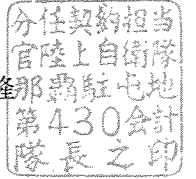 分任契約担当
官陸上自衛隊
隆那覇駐屯地
第430会計
隊長之印